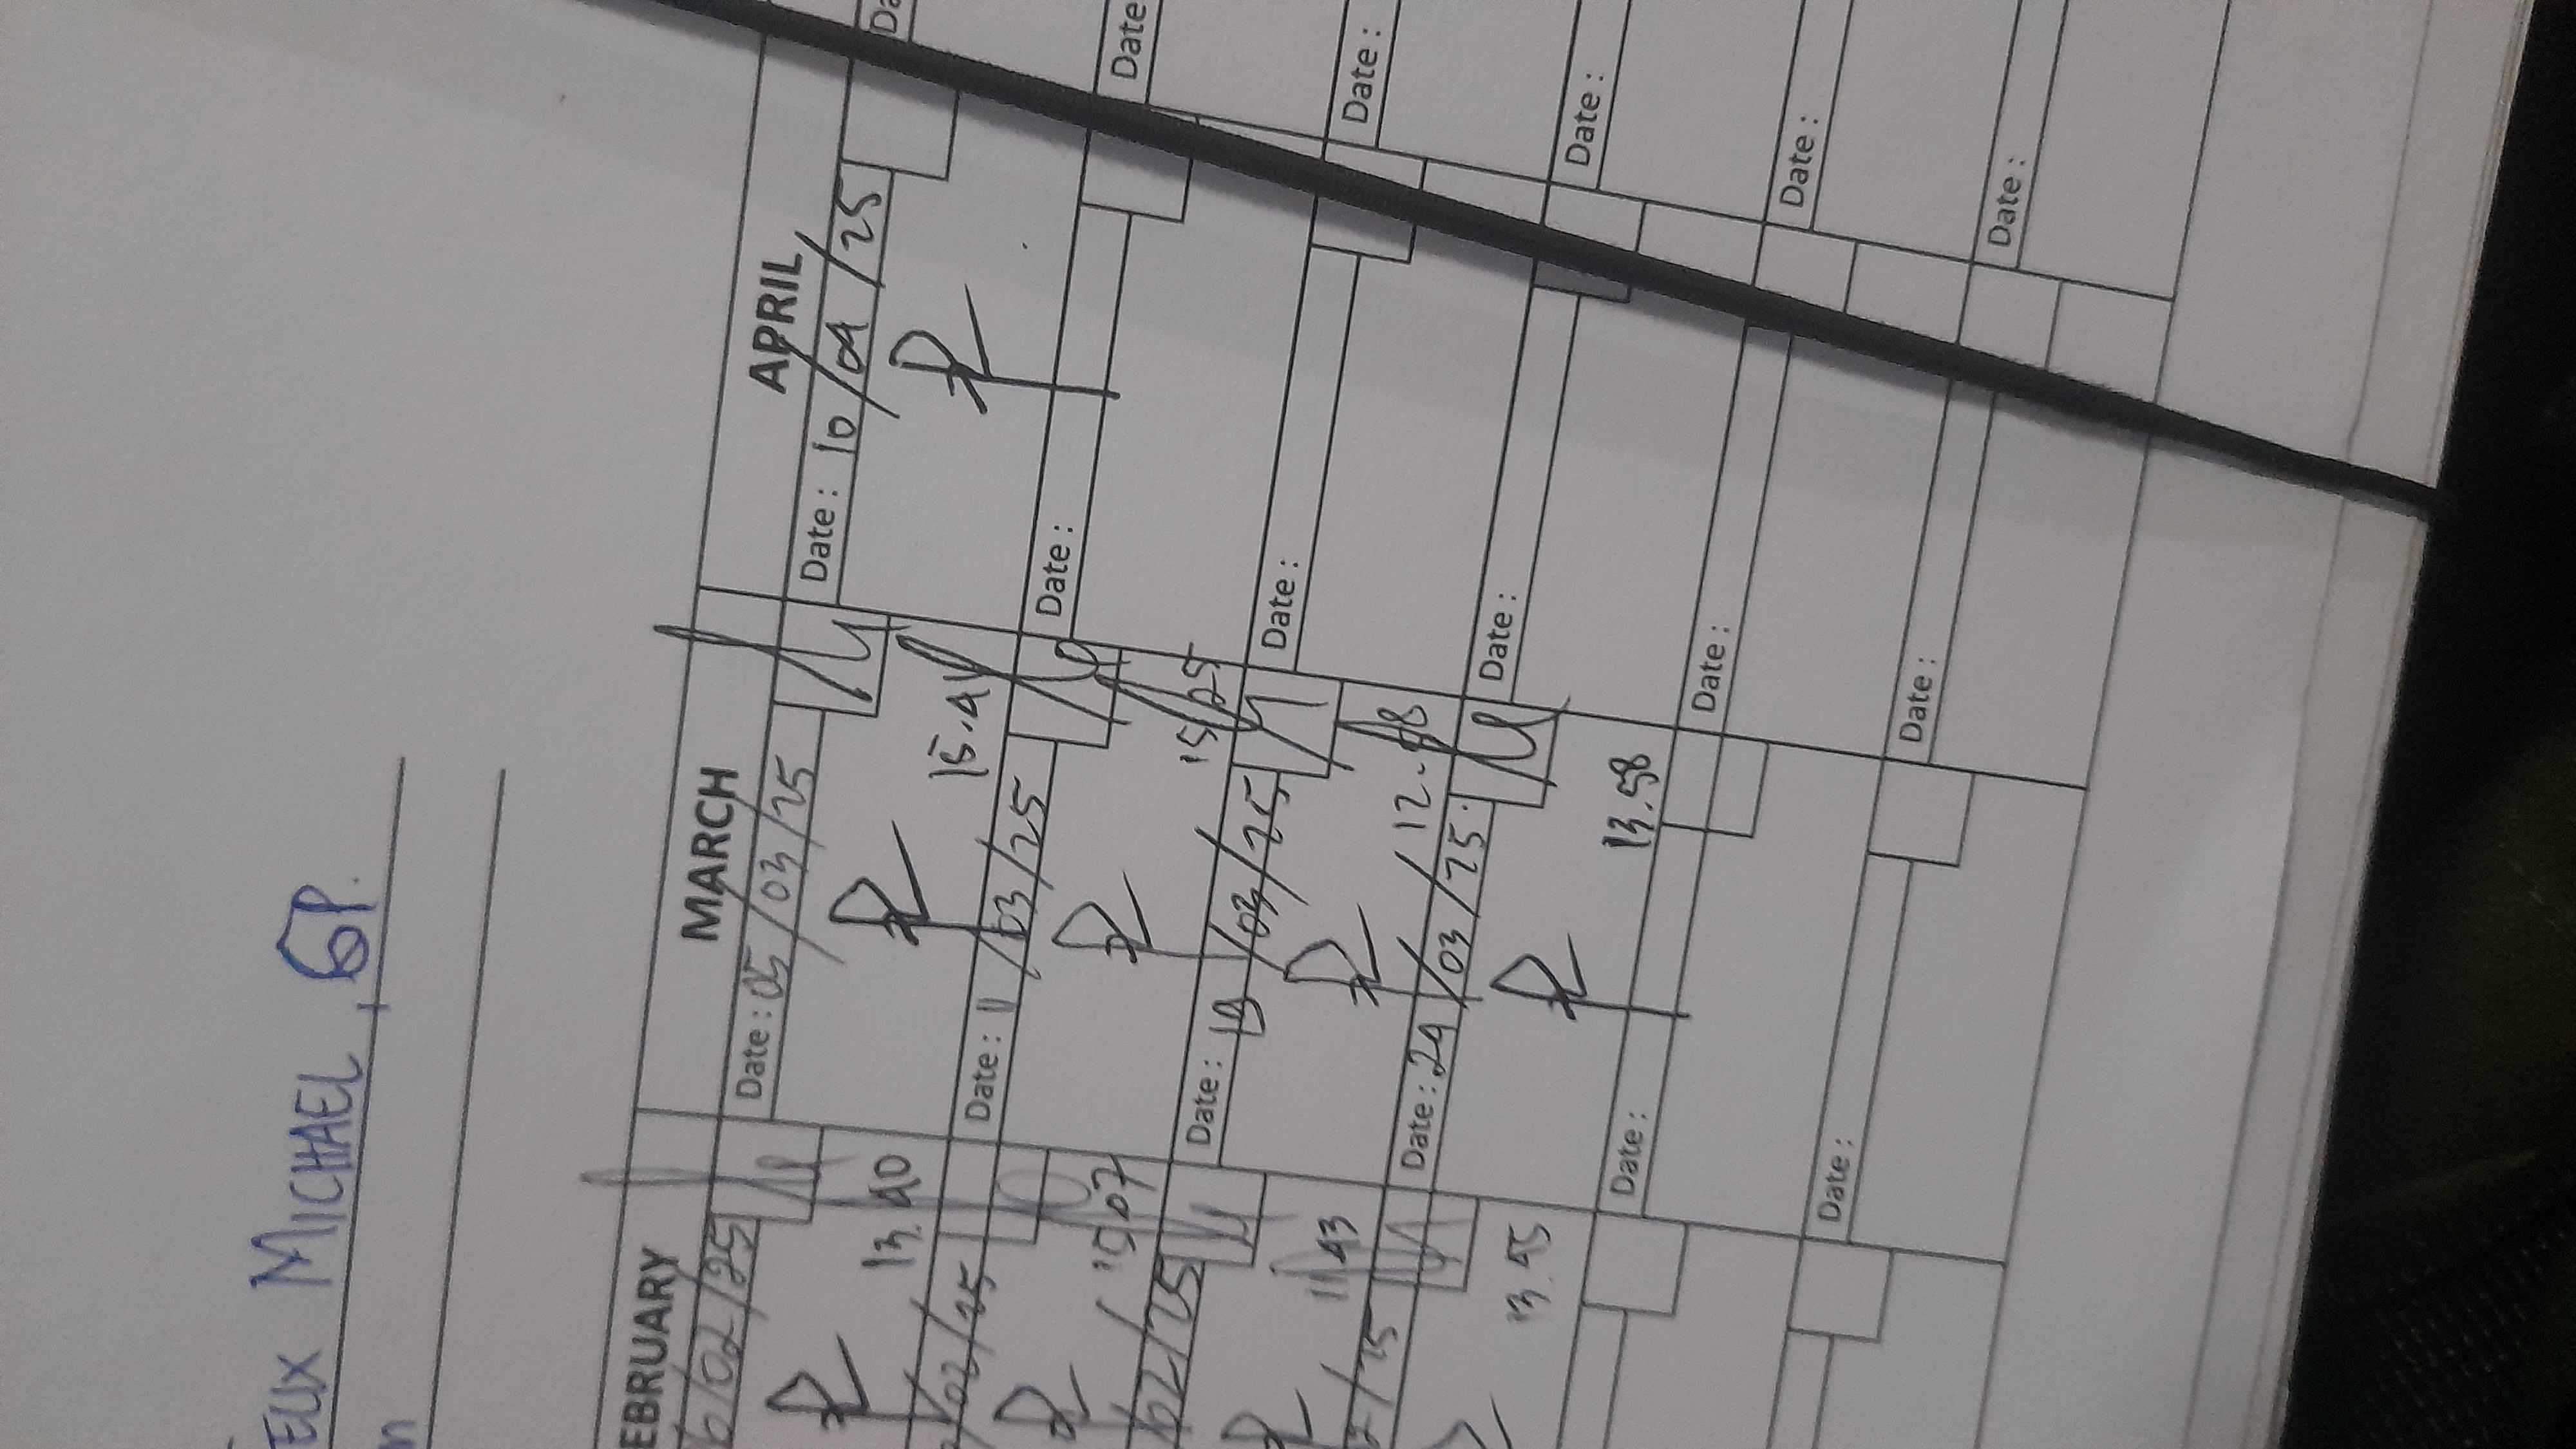 FELIX MICHAEL, GP.
EBRUARY MARCH APRIL
/02/25 Date: 05/03/25 Date: 10/04/25 Da
13.40 15.41
/02/25 Date: 11/03/25 Date: Date
15.07 15.25
/02/25 Date: 18/03/25 Date: Date:
11.43 12.
/25 Date: 24/03/25 Date: Date:
13.45 13.58
Date: Date: Date:
Date: Date: Date: